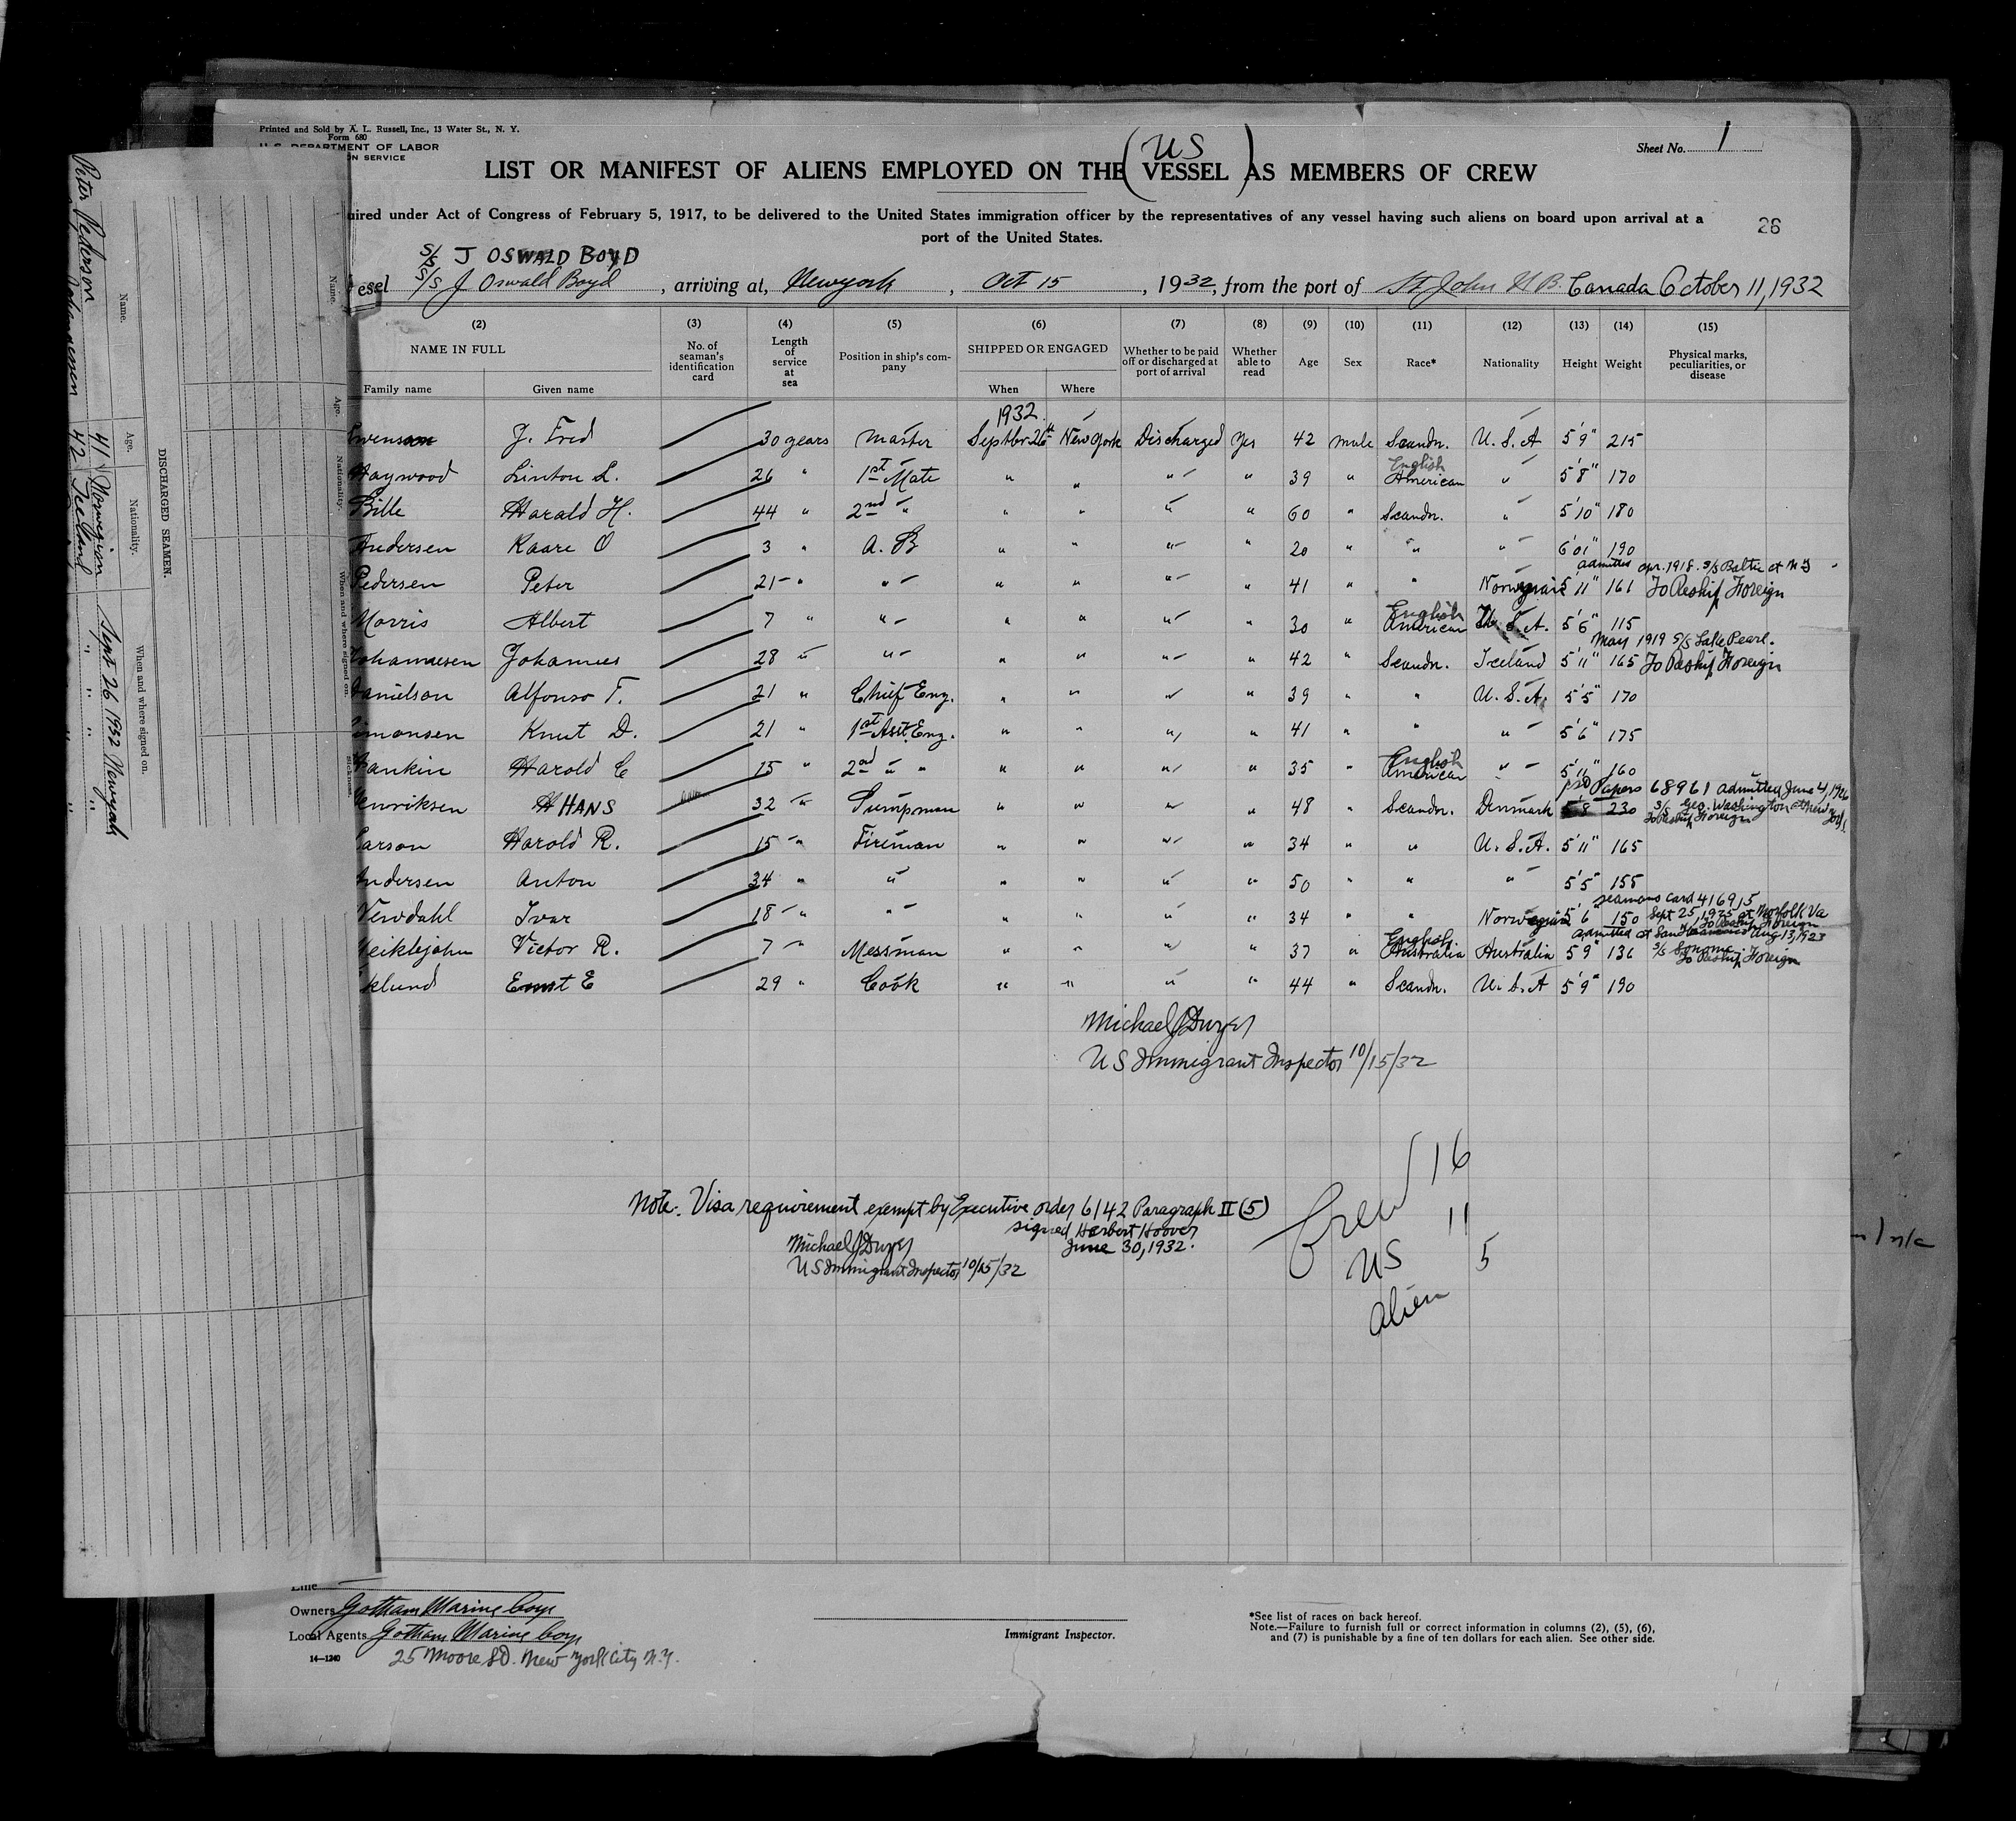 Printed and Sold by A. L. Russell, Inc., 13 Water St., N. Y.
Form 680
U. S. DEPARTMENT OF LABOR
ON SERVICE
Sheet No. 1
LIST OR MANIFEST OF ALIENS EMPLOYED ON THE (US VESSEL) AS MEMBERS OF CREW
uired under Act of Congress of February 5, 1917, to be delivered to the United States immigration officer by the representatives of any vessel having such aliens on board upon arrival at a
port of the United States.
26
S/S J OSWALD BOYD
esel S/S J Oswald Boyd, arriving at, Newyork, Oct 15, 1932, from the port of St John N B. Canada October 11, 1932
(2) (3) (4) (5) (6) (7) (8) (9) (10) (11) (12) (13) (14) (15)
NAME IN FULL
Family name Given name
No. of seaman's identification card
Length of service at sea
Position in ship's company
SHIPPED OR ENGAGED
When Where
Whether to be paid off or discharged at port of arrival
Whether able to read
Age Sex Race* Nationality Height Weight
Physical marks, peculiarities, or disease
1932
wenson J. Fred 30 years Master Septbr 26th New York Discharged Yes 42 male Scandn. U. S. A 5'9" 215
Haywood Linton L. 26 " 1st Mate " " " " 39 " English American " 5'8" 170
Bille Harald H. 44 " 2nd " " " " " 60 " Scandn. " 5'10" 180
Andersen Kaare O 3 " A. B " " " " 20 " " " 6'01" 190
admitted Apr. 1918. S/S Baltic at N Y
Pedersen Peter 21 " " " " " " 41 " " Norwegian 5'11" 161 To Reship Foreign
Morris Albert 7 " " " " " " 30 " English American U. S. A. 5'6" 115
May 1919 S/S Lake Pearl.
Johannesen Johannes 28 " " " " " " 42 " Scandn. Iceland 5'11" 165 To Reship Foreign
Danielson Alfonso T. 21 " Chief Eng. " " " " 39 " " U. S. A. 5'5" 170
imonsen Knut D. 21 " 1st Asst. Eng. " " " " 41 " " " 5'6" 175
Rankin Harold C 15 " 2nd " " " " " " 35 " English American " 5'11" 160
1st Papers 68961 admitted June 4, 1926
enriksen H HANS 32 " Pumpman " " " " 48 " Scandn. Denmark 5 8 230 S/S Geo. Washington at New York
To Reship Foreign
arson Harold R. 15 " Fireman " " " " 34 " " U. S. A. 5'11" 165
ndersen Anton 34 " " " " " " 50 " " " 5'5" 155
seamans card 416915
Ivar 18 " " " " " " 34 " " Norwegian 5'6" 150 Sept 25, 1925 at Norfolk Va
To Reship Foreign
admitted at San Francisco Aug 13, 1923
eiklejohn Victor R. 7 " Messman " " " " 37 " English Australia Australia 5 9" 136 S/S Sonoma
To Reship Foreign
klund Ernst E 29 " Cook " " " " 44 " Scandn. U. S. A 5'9" 190
Michael J Dwyer
US Immigrant Inspector 10/15/32
Crew 16
US 11
Alien 5
Note: Visa requirement exempt by Executive order 6142 Paragraph II (5)
signed, Herbert Hoover
June 30, 1932.
Michael J Dwyer
US Immigrant Inspector 10/15/32
Line
Owners Gotham Marine Corp
Local Agents Gotham Marine Corp
14—1240
25 Moore St. New York City N.Y.
Immigrant Inspector.
*See list of races on back hereof.
Note.—Failure to furnish full or correct information in columns (2), (5), (6),
and (7) is punishable by a fine of ten dollars for each alien. See other side.
DISCHARGED SEAMEN.
Name. Age. Nationality. When and where signed on.
Peter Pederson 41 Norwegian Sept 26 1932 Newyork
Johannessen 42 Iceland " " "
Name. Age. Nationality. When and where signed on. Sickness.